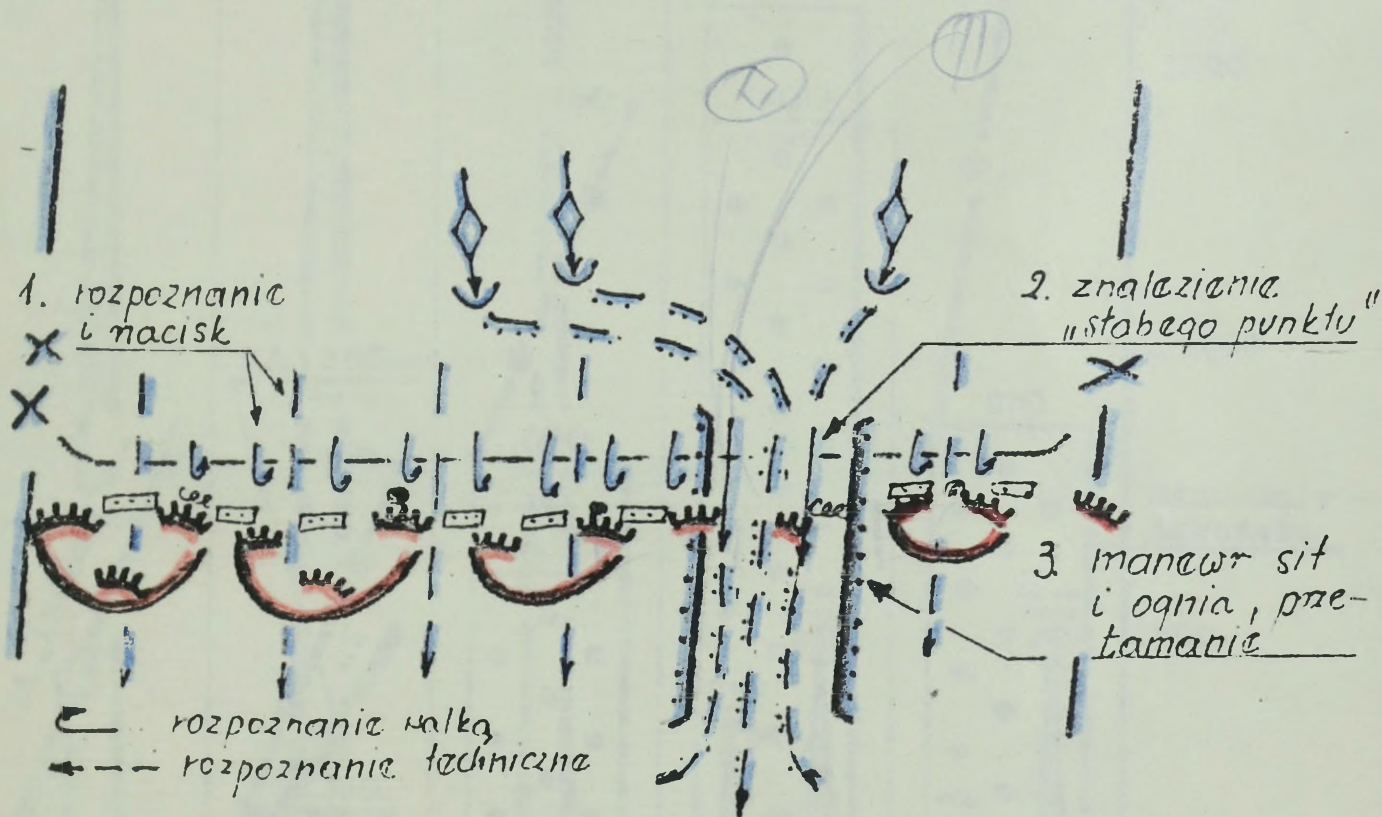 1. rozpoznanie
i nacisk
2. znalezienie
„słabego punktu"
3. manewr sił
i ognia, prze-
łamanie
rozpoznanie walką
rozpoznanie techniczne